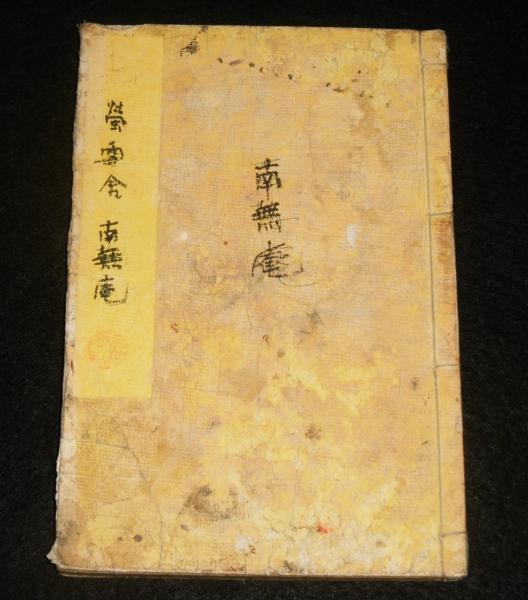 南無庵
螢雪舎 南無庵